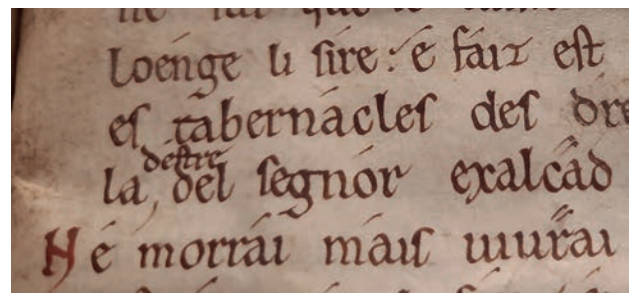 Loénge li ſire : é fáit eſt
eſ tabernácleſ deſ dre
deſtre
la, del ſegnór exalcád
Né morrái máiſ uiurái